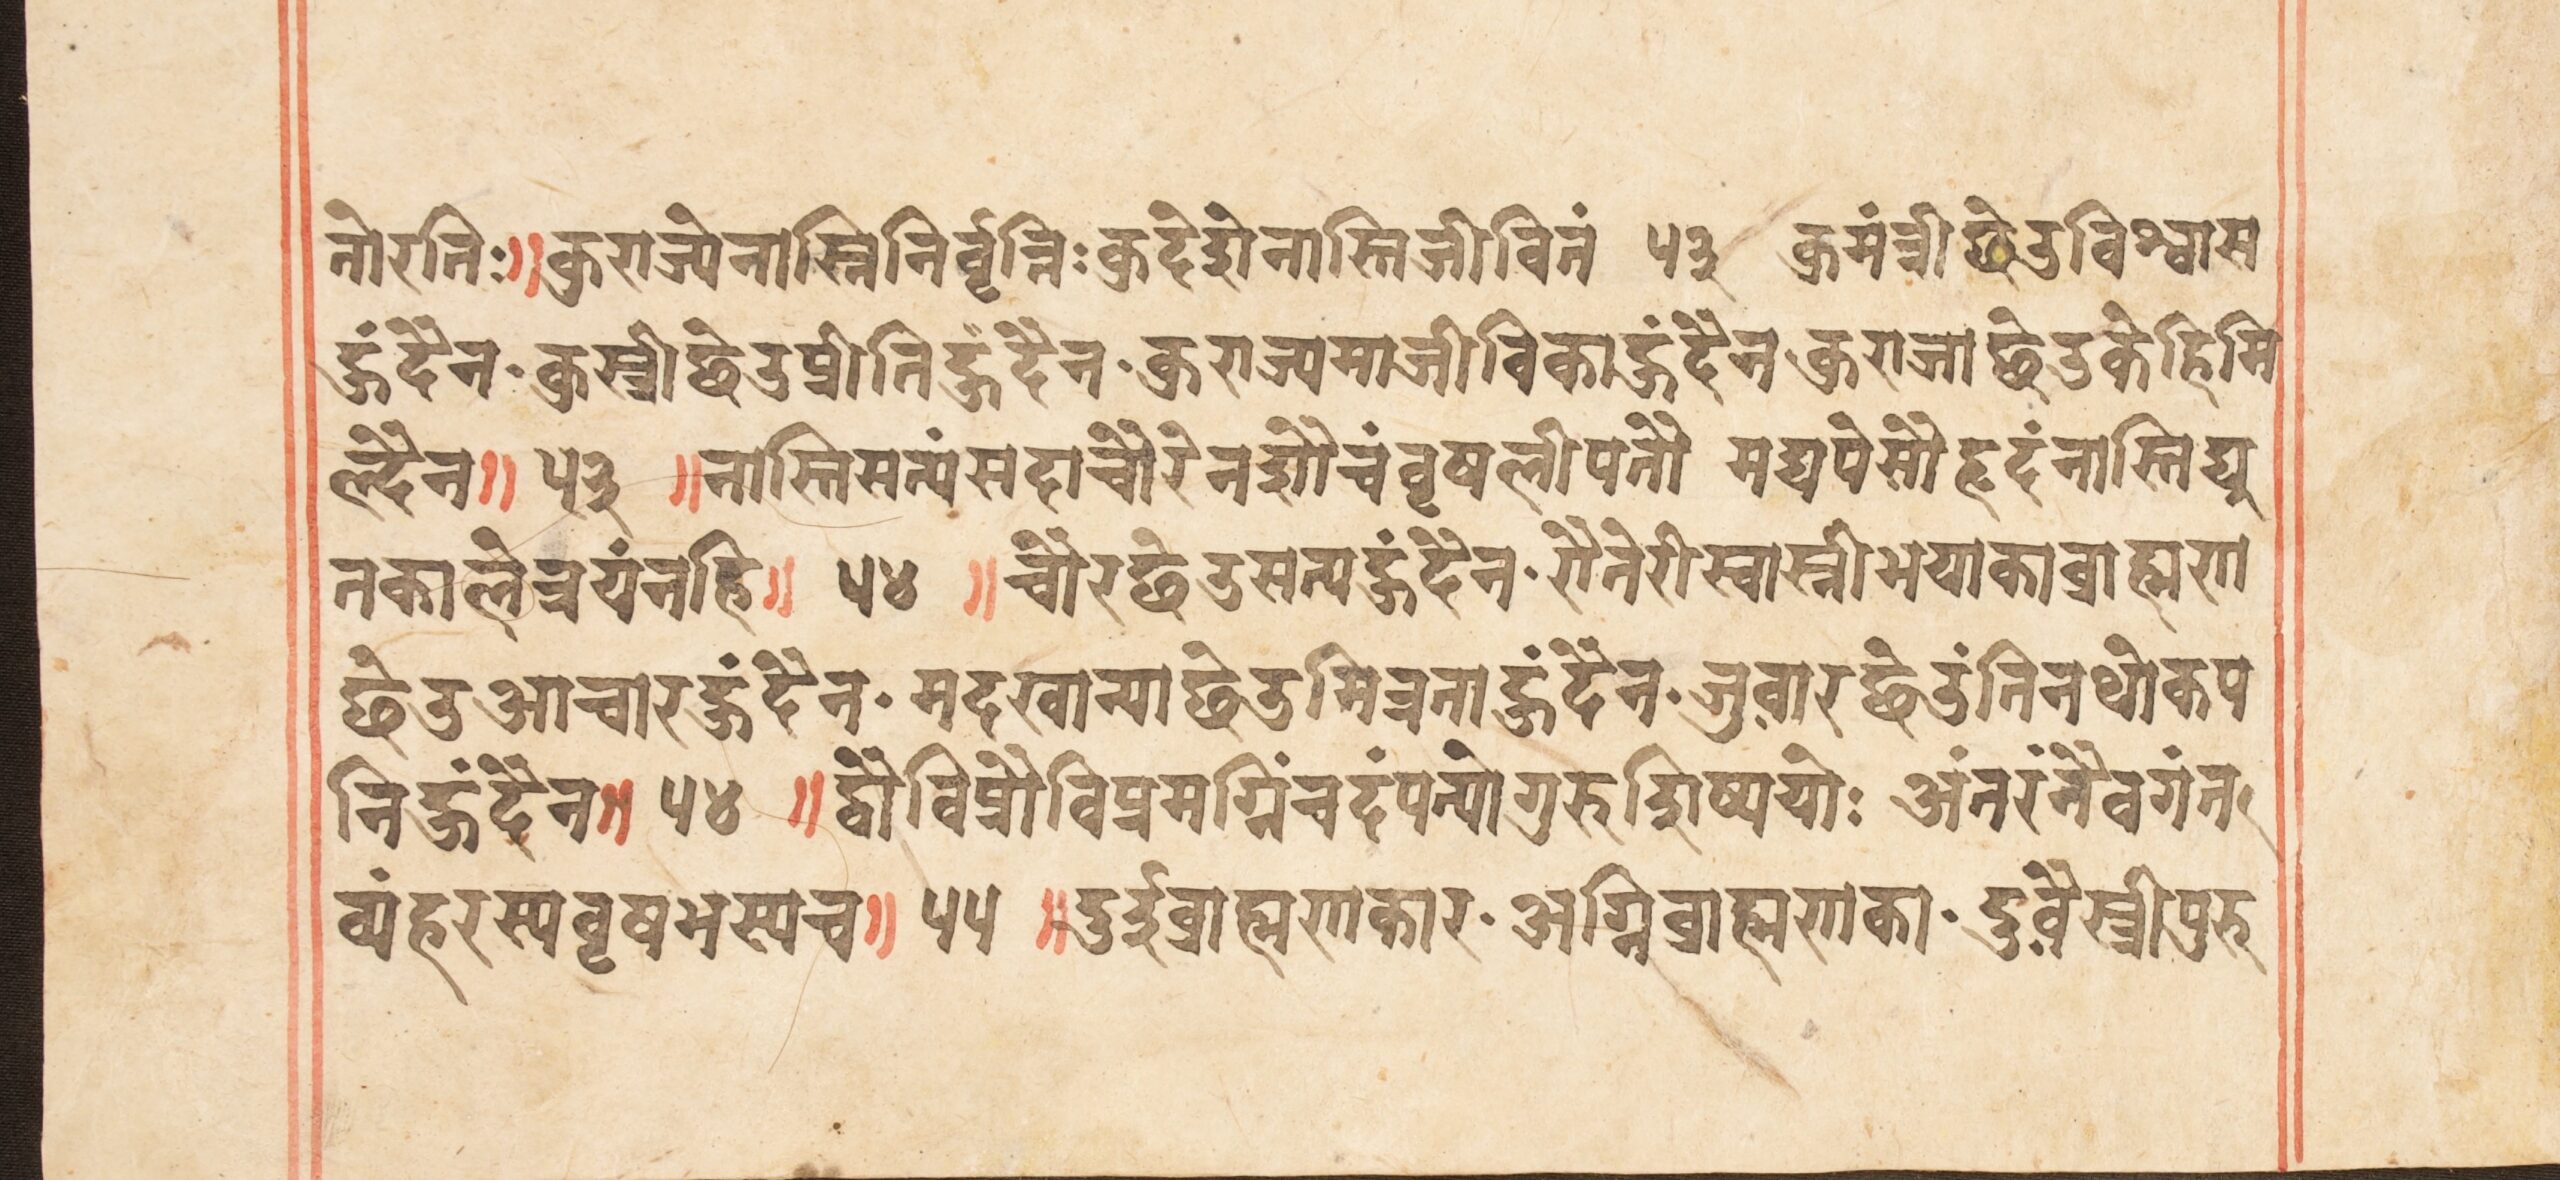 तोरतिः॥कुराज्येनास्तिनिर्वृत्तिःकुदेशेनास्तिजीवितं ५३ कुमंत्रीछेउविश्वास
हुंदैन·कुस्त्रीछेउप्रीतिहुंदैन·कुराज्यमाजीविकाहुंदैनकुराजाछेउकेहिमि
ल्दैन॥ ५३ ॥नास्तिसत्यंसदाचौरेनशौचंवृषलीपतौ मद्यपेसौहृदंनास्तिद्यु
तकालेत्रयंनहि॥ ५४ ॥चोरछेउसत्यहुंदैन·रौतेरीस्वास्नीभयाकाब्राह्मण
छेउआचारहुंदैन·मदखान्याछेउमित्रताहुंदैन·जुवारछेउंतिनथोकप
निहुंदैन॥ ५४ ॥द्वौविप्रौविप्रमग्निंचदंपत्योगुरुशिष्ययोः अंतरंनैवगंत
व्यंहरस्यवृषभस्यच॥ ५५ ॥दुईब्राह्मणकार·अग्निब्राह्मणका·दुवैस्त्रीपुरु